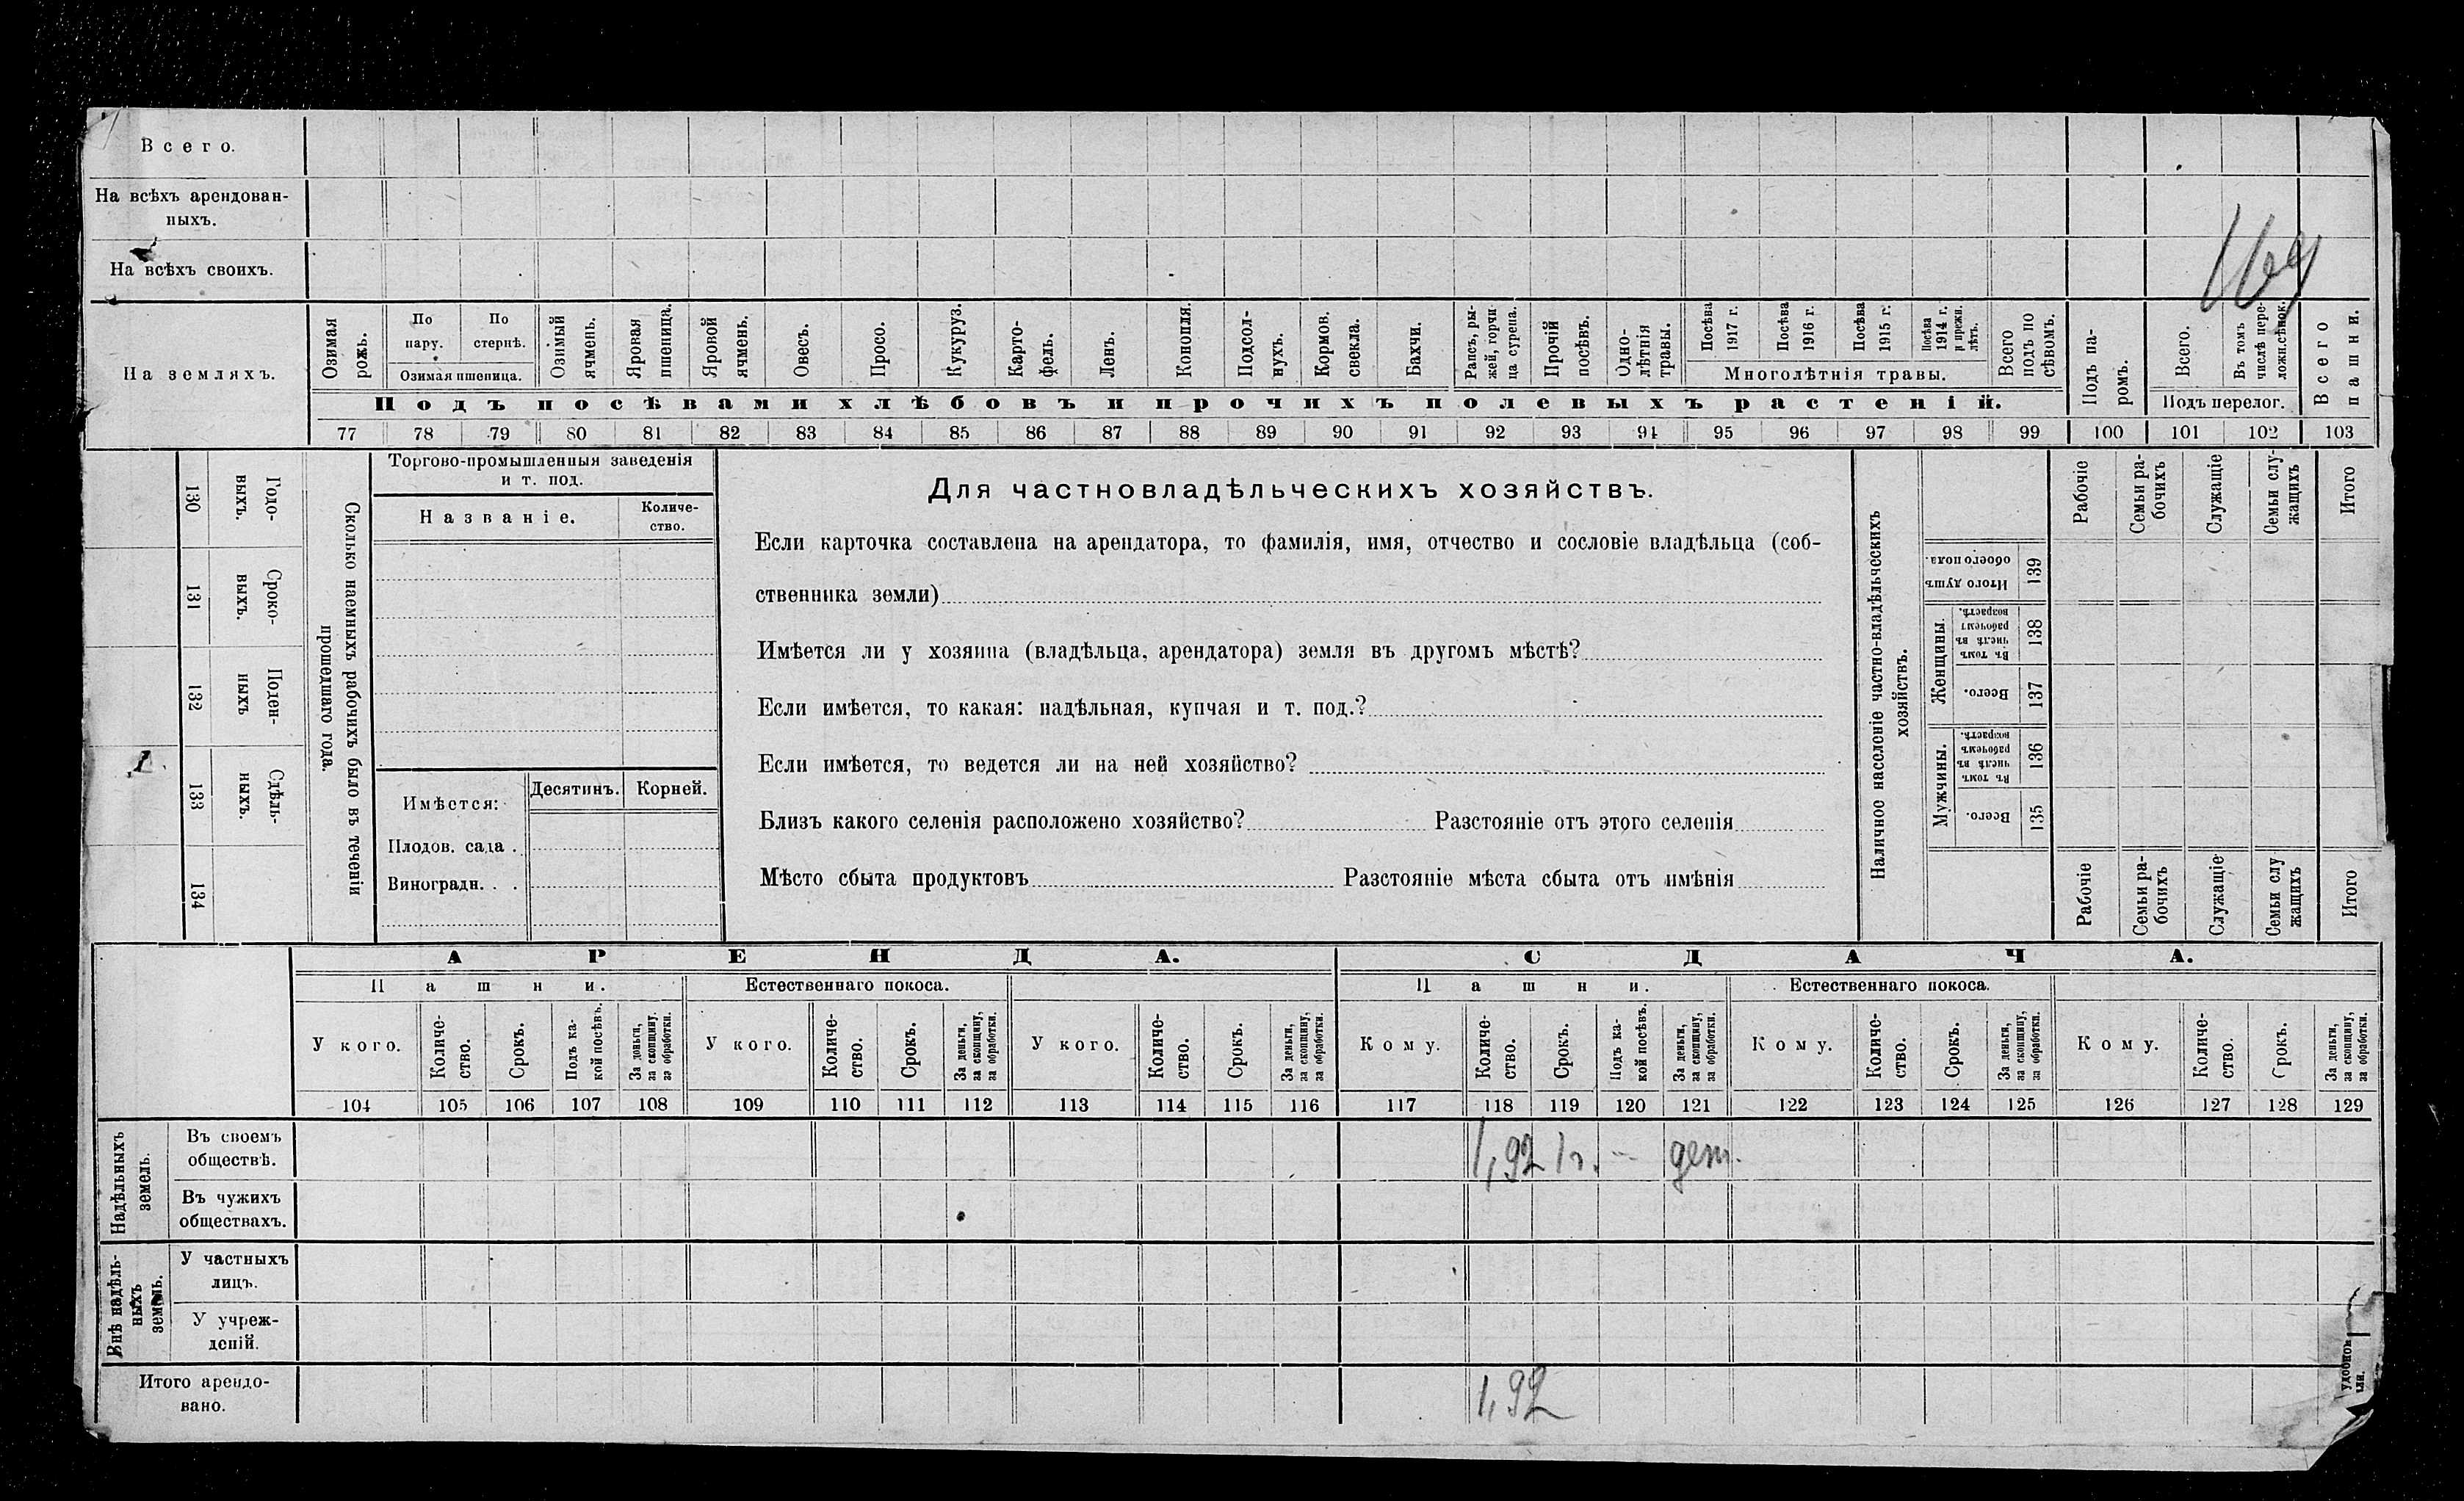 Всего.
На всѣхъ арендован-
ныхъ.
На всѣхъ своихъ.
На земляхъ.
Озимая
рожь.
По
пару.
По
стернѣ.
Озимая пшеница.
Озимый
ячмень.
Яровая
пшеница.
Яровой
ячмень.
Овесъ.
Просо.
Кукуруз.
Карто-
фель.
Ленъ.
Конопля.
Подсол-
нухъ.
Кормов.
свекла.
Бахчи.
Рапсъ, ры-
жей, горчи
ца сурепа.
Прочій
посѣвъ.
Одно-
лѣтнія
травы.
Посѣва
1917 г.
Посѣва
1916 г.
Посѣва
1915 г.
Посѣва
1914 г.
и прежн.
лѣтъ.
Многолѣтнія травы.
Всего
подъ по
сѣвомъ.
Подъ па-
ромъ.
Всего.
Въ томъ
числѣ пере-
ложн.сѣнок.
Подъ перелог.
Всего
пашни.
169
Подъ посѣвами хлѣбовъ и прочихъ полевыхъ растеній.
77 78 79 80 81 82 83 84 85 86 87 88 89 90 91 92 93 94 95 96 97 98 99 100 101 102 103
130
Годо-
выхъ.
131
Сроко-
выхъ.
132
Поден-
ныхъ
133
Сдѣль-
ныхъ.
1.
134
Сколько наемныхъ рабочихъ было въ теченіи
прошедшаго года.
Торгово-промышленныя заведенія
и т. под.
Названіе.
Количе-
ство.
Имѣется:
Десятин.
Корней.
Плодов. сада .
Виноградн. . .
Для частновладѣльческихъ хозяйствъ.
Если карточка составлена на арендатора, то фамилія, имя, отчество и сословіе владѣльца (соб-
ственника земли)
Имѣется ли у хозяина (владѣльца, арендатора) земля въ другомъ мѣстѣ?
Если имѣется, то какая: надѣльная, купчая и т. под.?
Если имѣется, то ведется ли на ней хозяйство?
Близъ какого селенія расположено хозяйство? Разстояніе отъ этого селенія
Мѣсто сбыта продуктовъ Разстояніе мѣста сбыта отъ имѣнія
Наличное населеніе частно-владѣльческихъ
хозяйствъ.
Рабочіе
Семьи ра-
бочихъ
Служащіе
Семьи слу-
жащихъ
Итого
Итого душъ
обоего пола.
139
Женщины.
Въ томъ
числѣ въ
рабочемъ
возрастѣ.
138
Всего.
137
Мужчины.
Въ томъ
числѣ въ
рабочемъ
возрастѣ.
136
Всего.
135
Рабочіе
Семьи ра-
бочихъ
Служащіе
Семьи слу
жащихъ
Итого
АРЕНДА. СДАЧА.
Пашни. Естественнаго покоса. Пашни. Естественнаго покоса.
У кого.
Количе-
ство.
Срокъ.
Подъ ка-
кой посѣвъ.
За деньги,
за скопщину,
за обработки.
У кого.
Количе-
ство.
Срокъ.
За деньги,
за скопщину,
за обработки.
У кого.
Количе-
ство.
Срокъ.
За деньги,
за скопщину,
за обработки.
Кому.
Количе-
ство.
Срокъ.
Подъ ка-
кой посѣвъ.
За деньги,
за скопщину,
за обработки.
Кому.
Количе-
ство.
Срокъ.
За деньги,
за скопщину,
за обработки.
Кому.
Количе-
ство.
Срокъ.
За деньги,
за скопщину,
за обработки.
104 105 106 107 108 109 110 111 112 113 114 115 116 117 118 119 120 121 122 123 124 125 126 127 128 129
Надѣльныхъ
земель.
Въ своемъ
обществѣ.
1,92 1г. — ден.
Въ чужихъ
обществахъ.
Внѣ надѣль-
ныхъ
земель.
У частныхъ
лицъ.
У учреж-
деній.
Итого арендо-
вано.
1,92